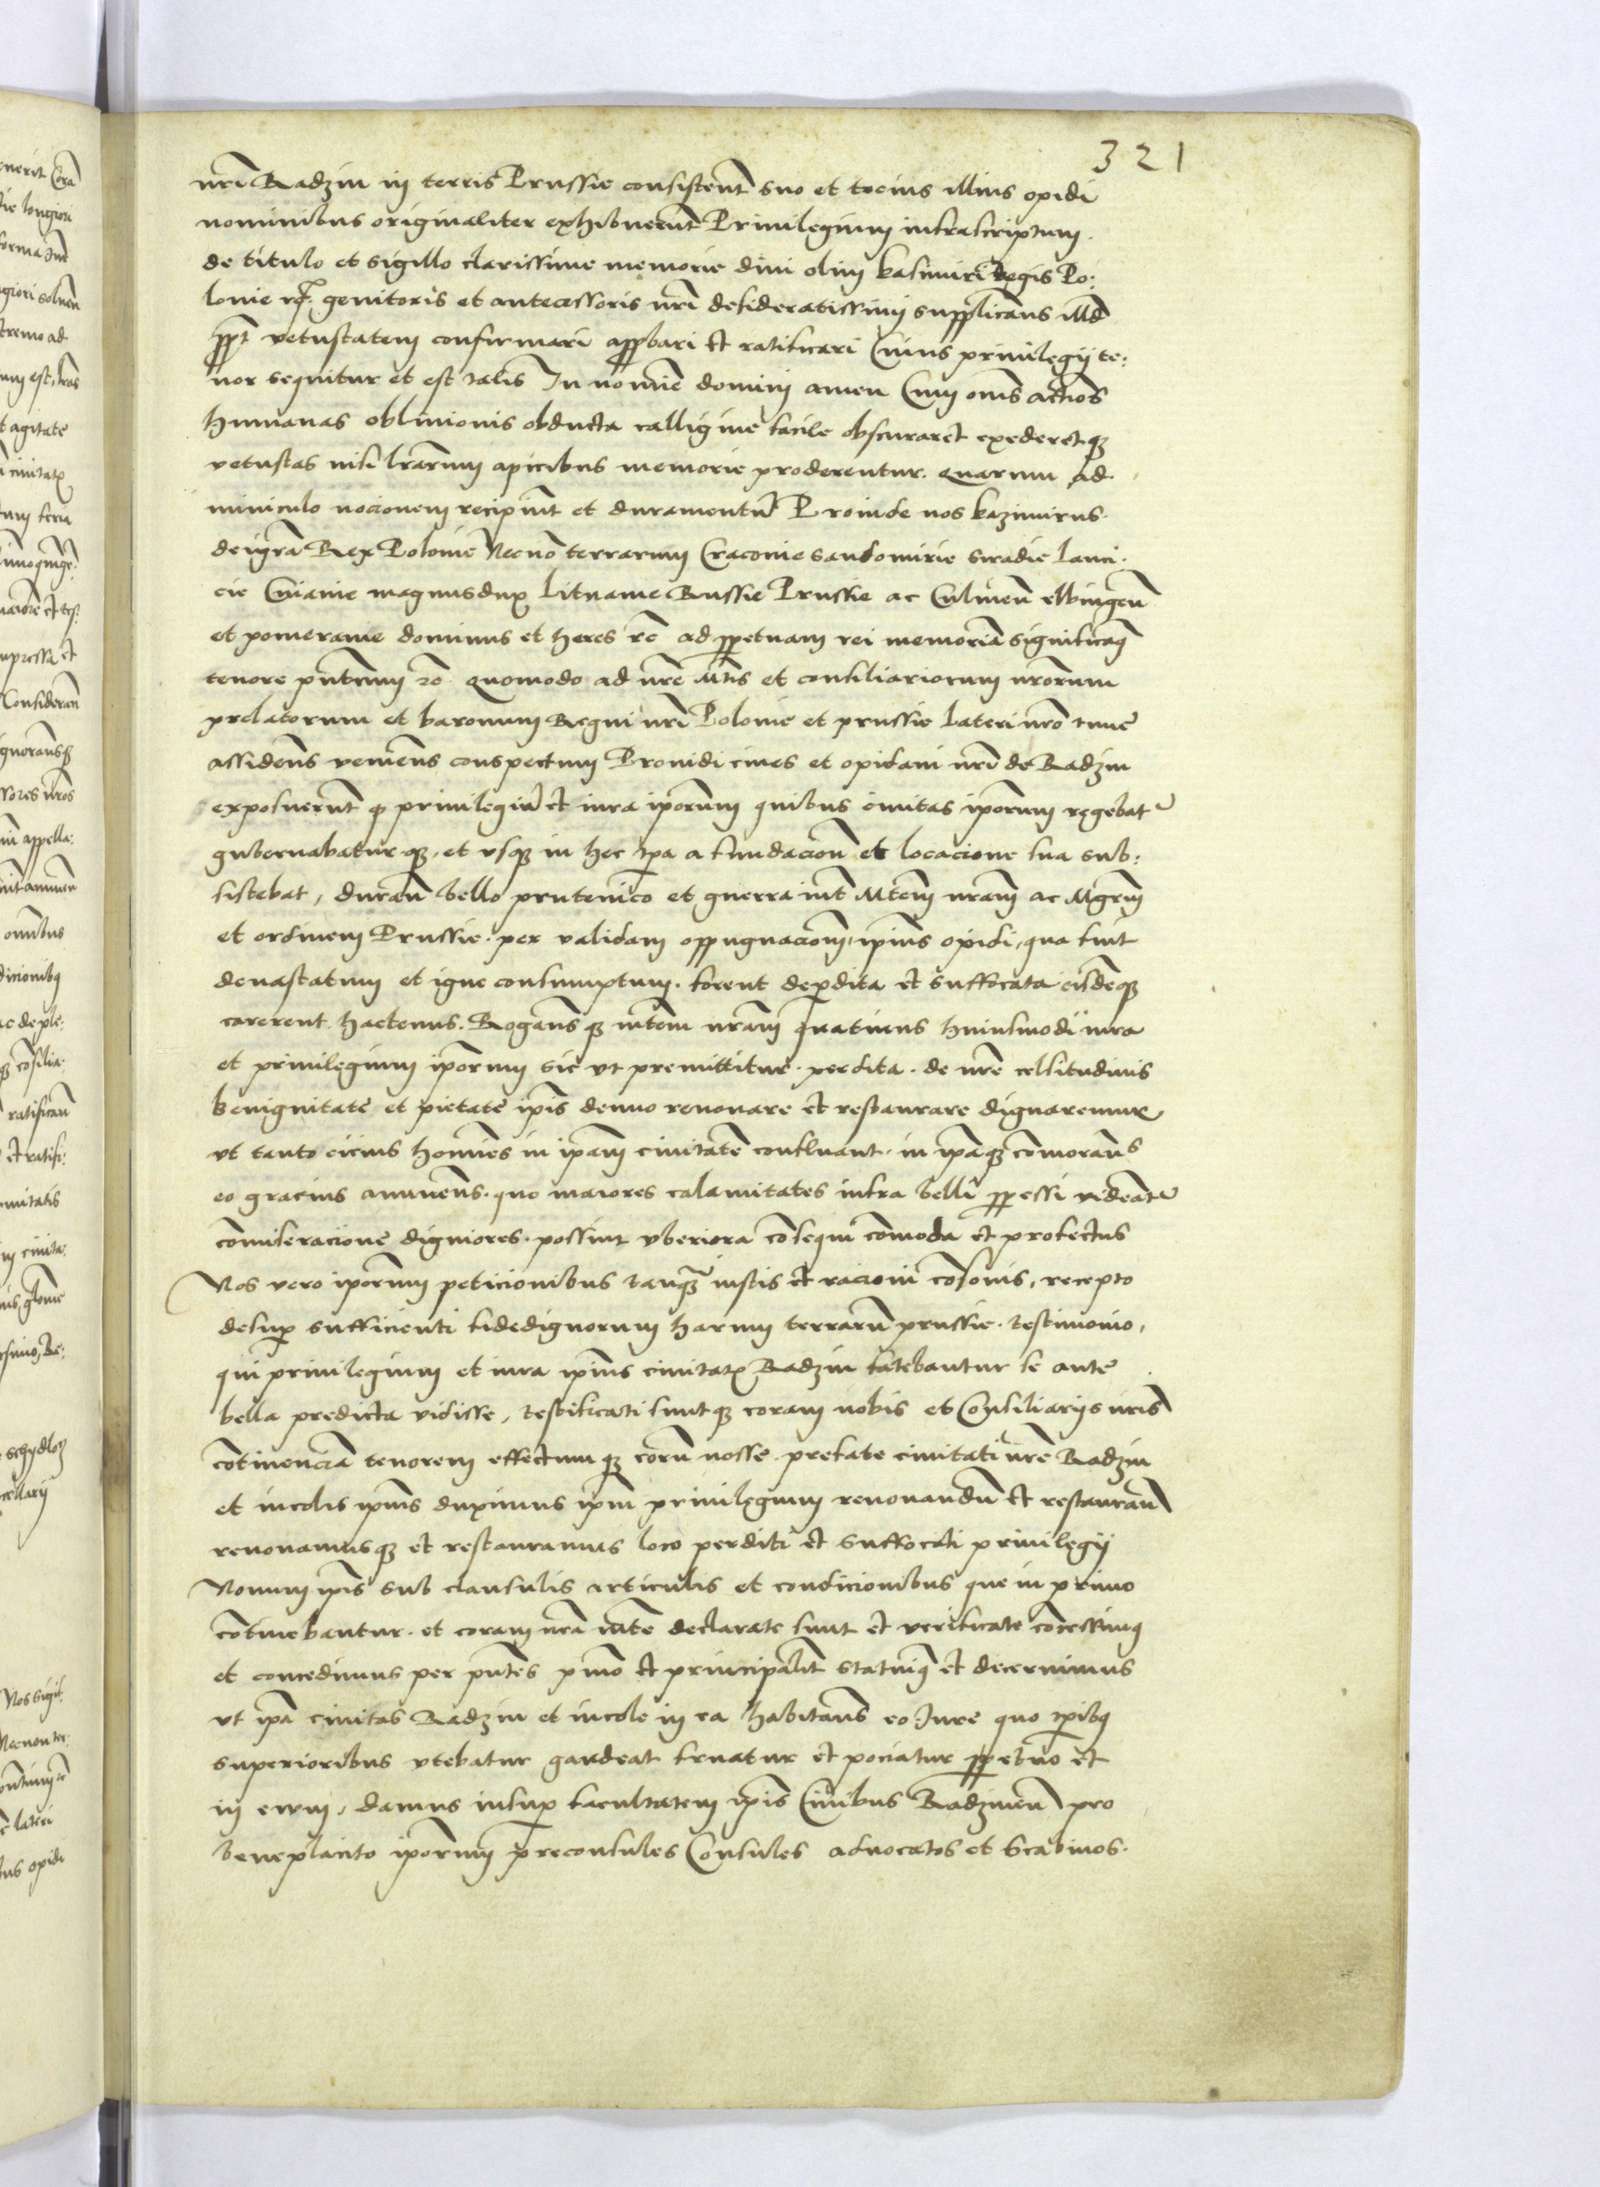 321
nri Radzin in terris Prussie consistent suo et tocius illius opidi
nominibus originaliter exhibuerunt Privilegium infrascriptum
de titulo et sigillo clarissime memorie divi olim kasimiri Regis Po:
lonie genitoris et antecessoris nri desideratissimi supplicans illd
vetustatem confirmari approbari et ratificari Cuius privilegij te:
nor sequitur et est talis In nomie domini amen Cum oms actiões
humanas oblivionis obducta calligine facile obscuraret exederetque
vetustas nisi lrarum apicibus memorie proderentur quarum ad
miniculo nocionem recipiunt et duramentum Proinde nos kazimirus
dei gra Rex Polonie Necno terrarum Cracovie Sandomirie Siradie Lanci
cie Cuiavie magnus dux Lituanie Russie Prussie ac Culmen elbingen
et pomeranie dominus et heres rc ad perpetuam rei memoria significaq
tenore pntium quomodo ad nre Mtis et consiliariorum nrorum
prelatorum et baronum Regni nri Polonie et prussie lateri nro tunc
assidens veniens conspectum Providi cives et opidani nri de Radzin
exposuerunt q privilegiu et iura iporum quibus civitas iporum regebat
gubernabatur que et usque in hec tpa a fundacion et locacione sua sub:
sistebat, duran bello prutenico et guerra int Mtem nram ac Mgrm
et ordinem Prussie per validam oppugnaciom ipius opidi, qua fuit
devastatum et igne consumptum forent deperdita et suffocata eisdemque
carerent hactenus. Rogansque mtem nram quatinus huiusmodi iura
et privilegium iporum sic ut premittitur perdita de nre celsitudinis
benignitate et pietate ipis denuo renovare et restaurare dignaremur
ut tanto cicius homies in ipam civitate confluant in ipaque comorans
eo gracius annuens quo maiores calamitates infra belli perpessi videant
comiseracione digniores possint uberiora cosequi comoda et profectus
Nos vero iporum peticionibus tanquam iustis et racioni cosonis, recepto
desuper sufficienti fidedignorum harum terraru prussie testimonio,
qui privilegium et iura ipius civitatis Radzin fatebantur se ante
bella predicta vidisse, testificati suntque coram nobis et Consiliarijs nris
cotinencia tenorem effectumque eoru nosse prefate civitati nre Radzin
et incolis ipius duximus ipm privilegium renovandu et restauran
renovamusque et restauramus loco perditi et suffocati privilegij
Novum ipis sub clausulis articulis et condicionibus que in primo
cotinebantur et coram nra mte declarate sunt et verificate concessimus
et concedimus per pntes pmo et principalit statuimus et decernimus
ut ipa civitas Radzin et incole in ea habitans eo Iure quo tpibus
superioribus utebatur gaudeat fruatur et pociatur perpetuo et
in evum, damus insuper facultatem ipis Civibus Radzinen pro
beneplacito iporum preconsules Consules advocatos et Scabinos